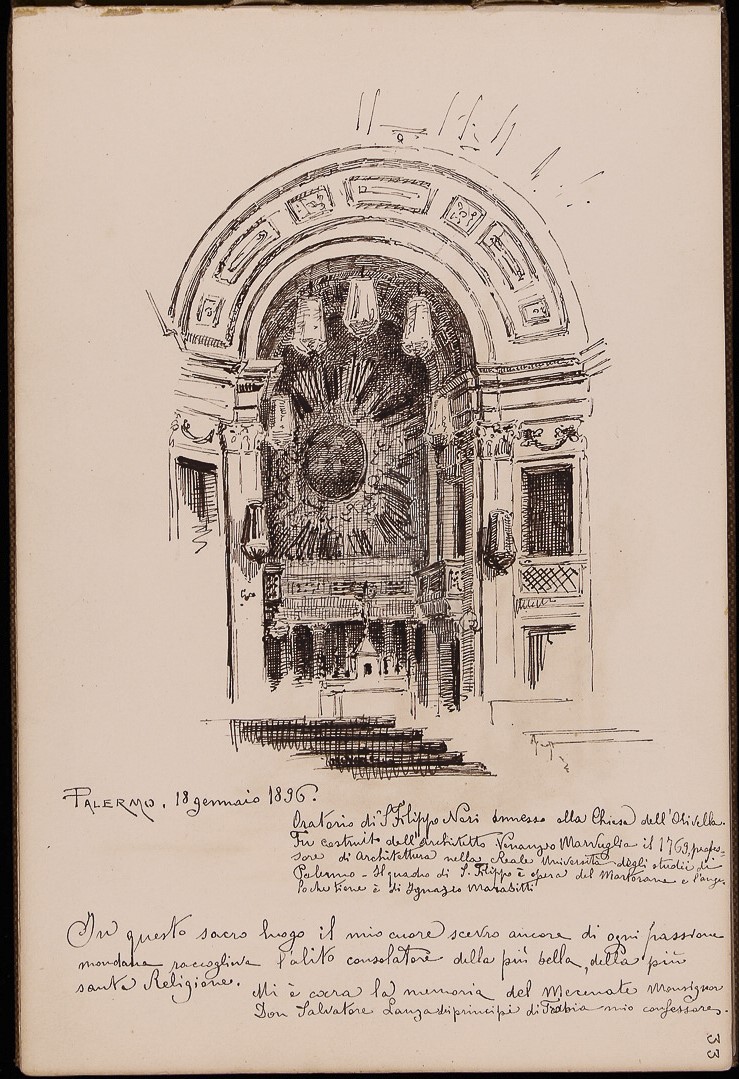 PALERMO, 18 gennaio 1896.
Oratorio di S Filippo Neri annesso alla Chiesa dell'Olivella.
Fu costruito dall'Architetto Venanzio Marvuglia il 1769, profes-
sore di Architettura nella Reale Università degli studii di
Palermo - Il quadro di S. Filippo è opera del Martorana e l'ange-
lo che tiene è di Ignazio Marabitti
In questo sacro luogo il mio cuore scevro ancora di ogni passione
mondana raccoglieva l'alito consolatore della più bella, della più
santa Religione.
Mi è cara la memoria del Monsignor
Don Salvatore Lanza dei principi di Trabia mio confessore.
33